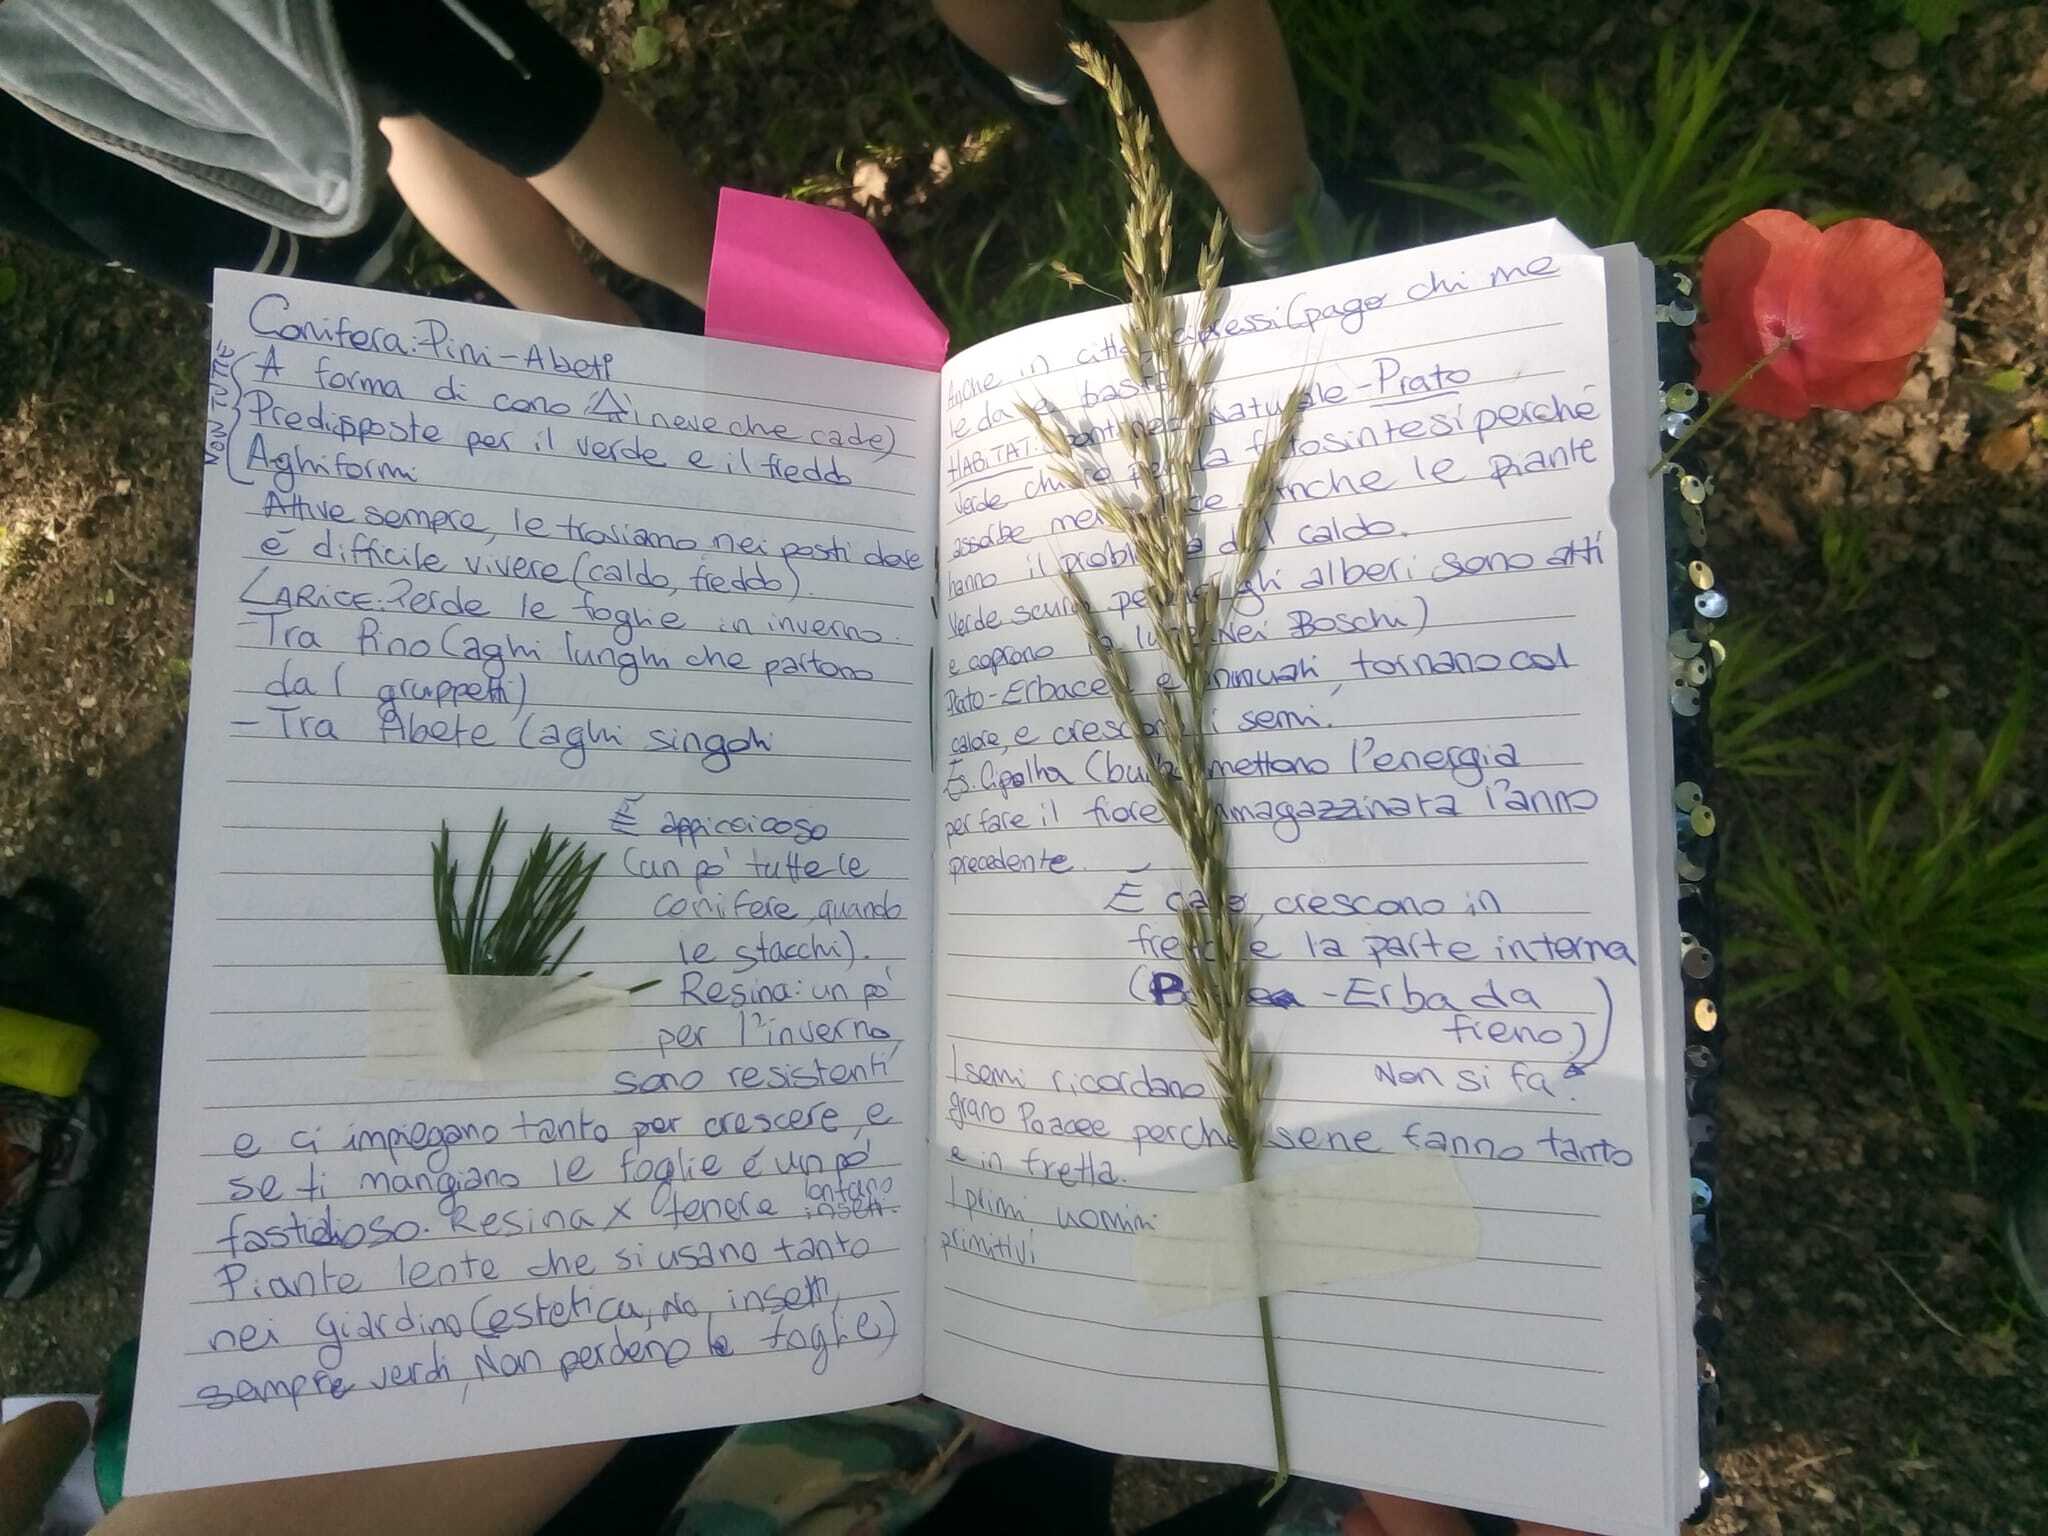 Conifera: Pini - Abeti
NON TUTTE
A forma di cono (neve che cade)
Predisposte per il verde e il freddo
Aghiformi
Attive sempre, le troviamo nei posti dove
é difficile vivere (caldo, freddo).
LARICE: Perde le foglie in inverno.
- Tra Pino (aghi lunghi che partono
dal gruppetti)
- Tra Abete (aghi singoli
É appiccicoso
(un pò tutte le
conifere, quando
le stacchi).
Resina: un pò
per l'inverno,
sono resistenti
e ci impiegano tanto per crescere, e
se ti mangiano le foglie é un pò
fastidioso. Resina x tenere lontano
insetti.
Piante lente che si usano tanto
nei giardino (estetica, No insetti,
sempre verdi, Non perdono le foglie)
Anche in città cipressi (pago chi me
le da e basta
HABITAT: Naturale - Prato
verde per la fotosintesi perché
Anche le piante
hanno il problema del caldo.
Verde scuro gli alberi sono alti
e coprono la luce Nei Boschi)
Erbacee e annuali, tornano col
calore, e crescono i semi.
Es. (bulbo mettono l'energia
per fare il fiore immagazzinata l'anno
precedente.
É crescono in
e la parte interna
- Erba da
fieno)
Non si fa
I semi ricordano
grano Poacee perché sene fanno tanto
e in fretta.
I primi uomini
primitivi